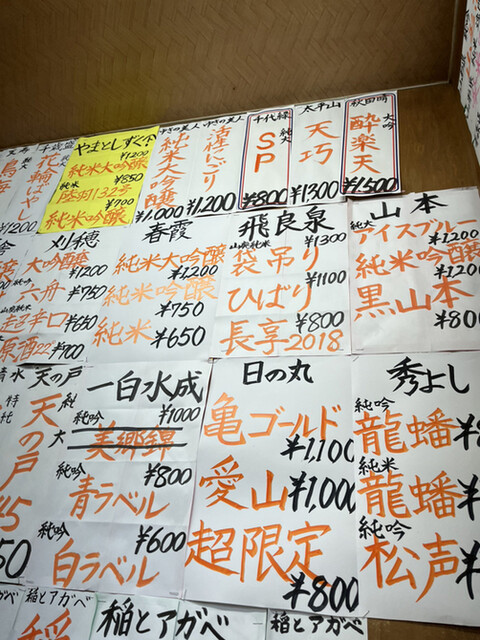 鳥海
¥1200
千歳盛
花輪ばやし
¥1200
やまとしずく
¥1200
純米大吟醸
¥850
純米
陸羽132号
¥700
純米吟醸
ゆきの美人
純米大吟醸
¥1,000
ゆきの美人
活性にごり
¥1,200
千代緑
純大
SP
¥800
太平山
天巧
¥1300
秋田晴
大吟
酔楽天
¥1,500
刈穂
大吟醸
¥1200
六舟
¥750
山廃純米
超辛口
¥650
原酒22
¥700
春霞
純米大吟醸
¥1200
純米吟醸
¥750
純米
¥650
飛良泉
山廃純米
¥1300
袋吊り
¥1100
ひばり
¥800
長享2018
山本
純大
アイスブルー
¥1200
純米吟醸
¥1200
黒山本
¥80
清水
特純
天の戸
純大
天の戸
45
50
一白水成
純吟
¥1000
美郷錦
¥800
純吟
青ラベル
¥600
純吟
白ラベル
日の丸
亀ゴールド
¥1,100
愛山
¥1,000
超限定
¥800
秀よし
純吟
龍蟠
¥8
純米
龍蟠
¥
純吟
松声
¥
稲とアガベ
稲とアガベ
稲とアガベ